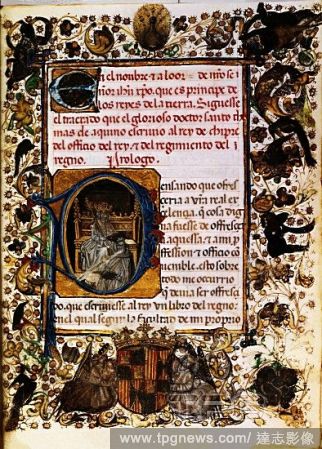 En el nombre ⁊ a loor de nr̃o se
ñor ih̃u xp̃o. que es principe de
los reyes de la tierra. Siguesse
el tractado que el glorioso doctor santo tho
mas de aquino escriuio al rey de chipre
del officio del rey. ⁊ del regimiento del
regno. Prologo.
Pensando que ofres
ceria a vr̃a real ex
celençia. que cosa dig
na fuesse de offresçer
a aquessa ⁊ a mi pro
fession ⁊ officio co
uenible. esto sobre
todo me occurrio
que deuia ser offresçi
do. que escriuiesse al rey un libro del regno.
en el qual segun la facultad de mi proprio
www.tpgnews.com/ 達志影像